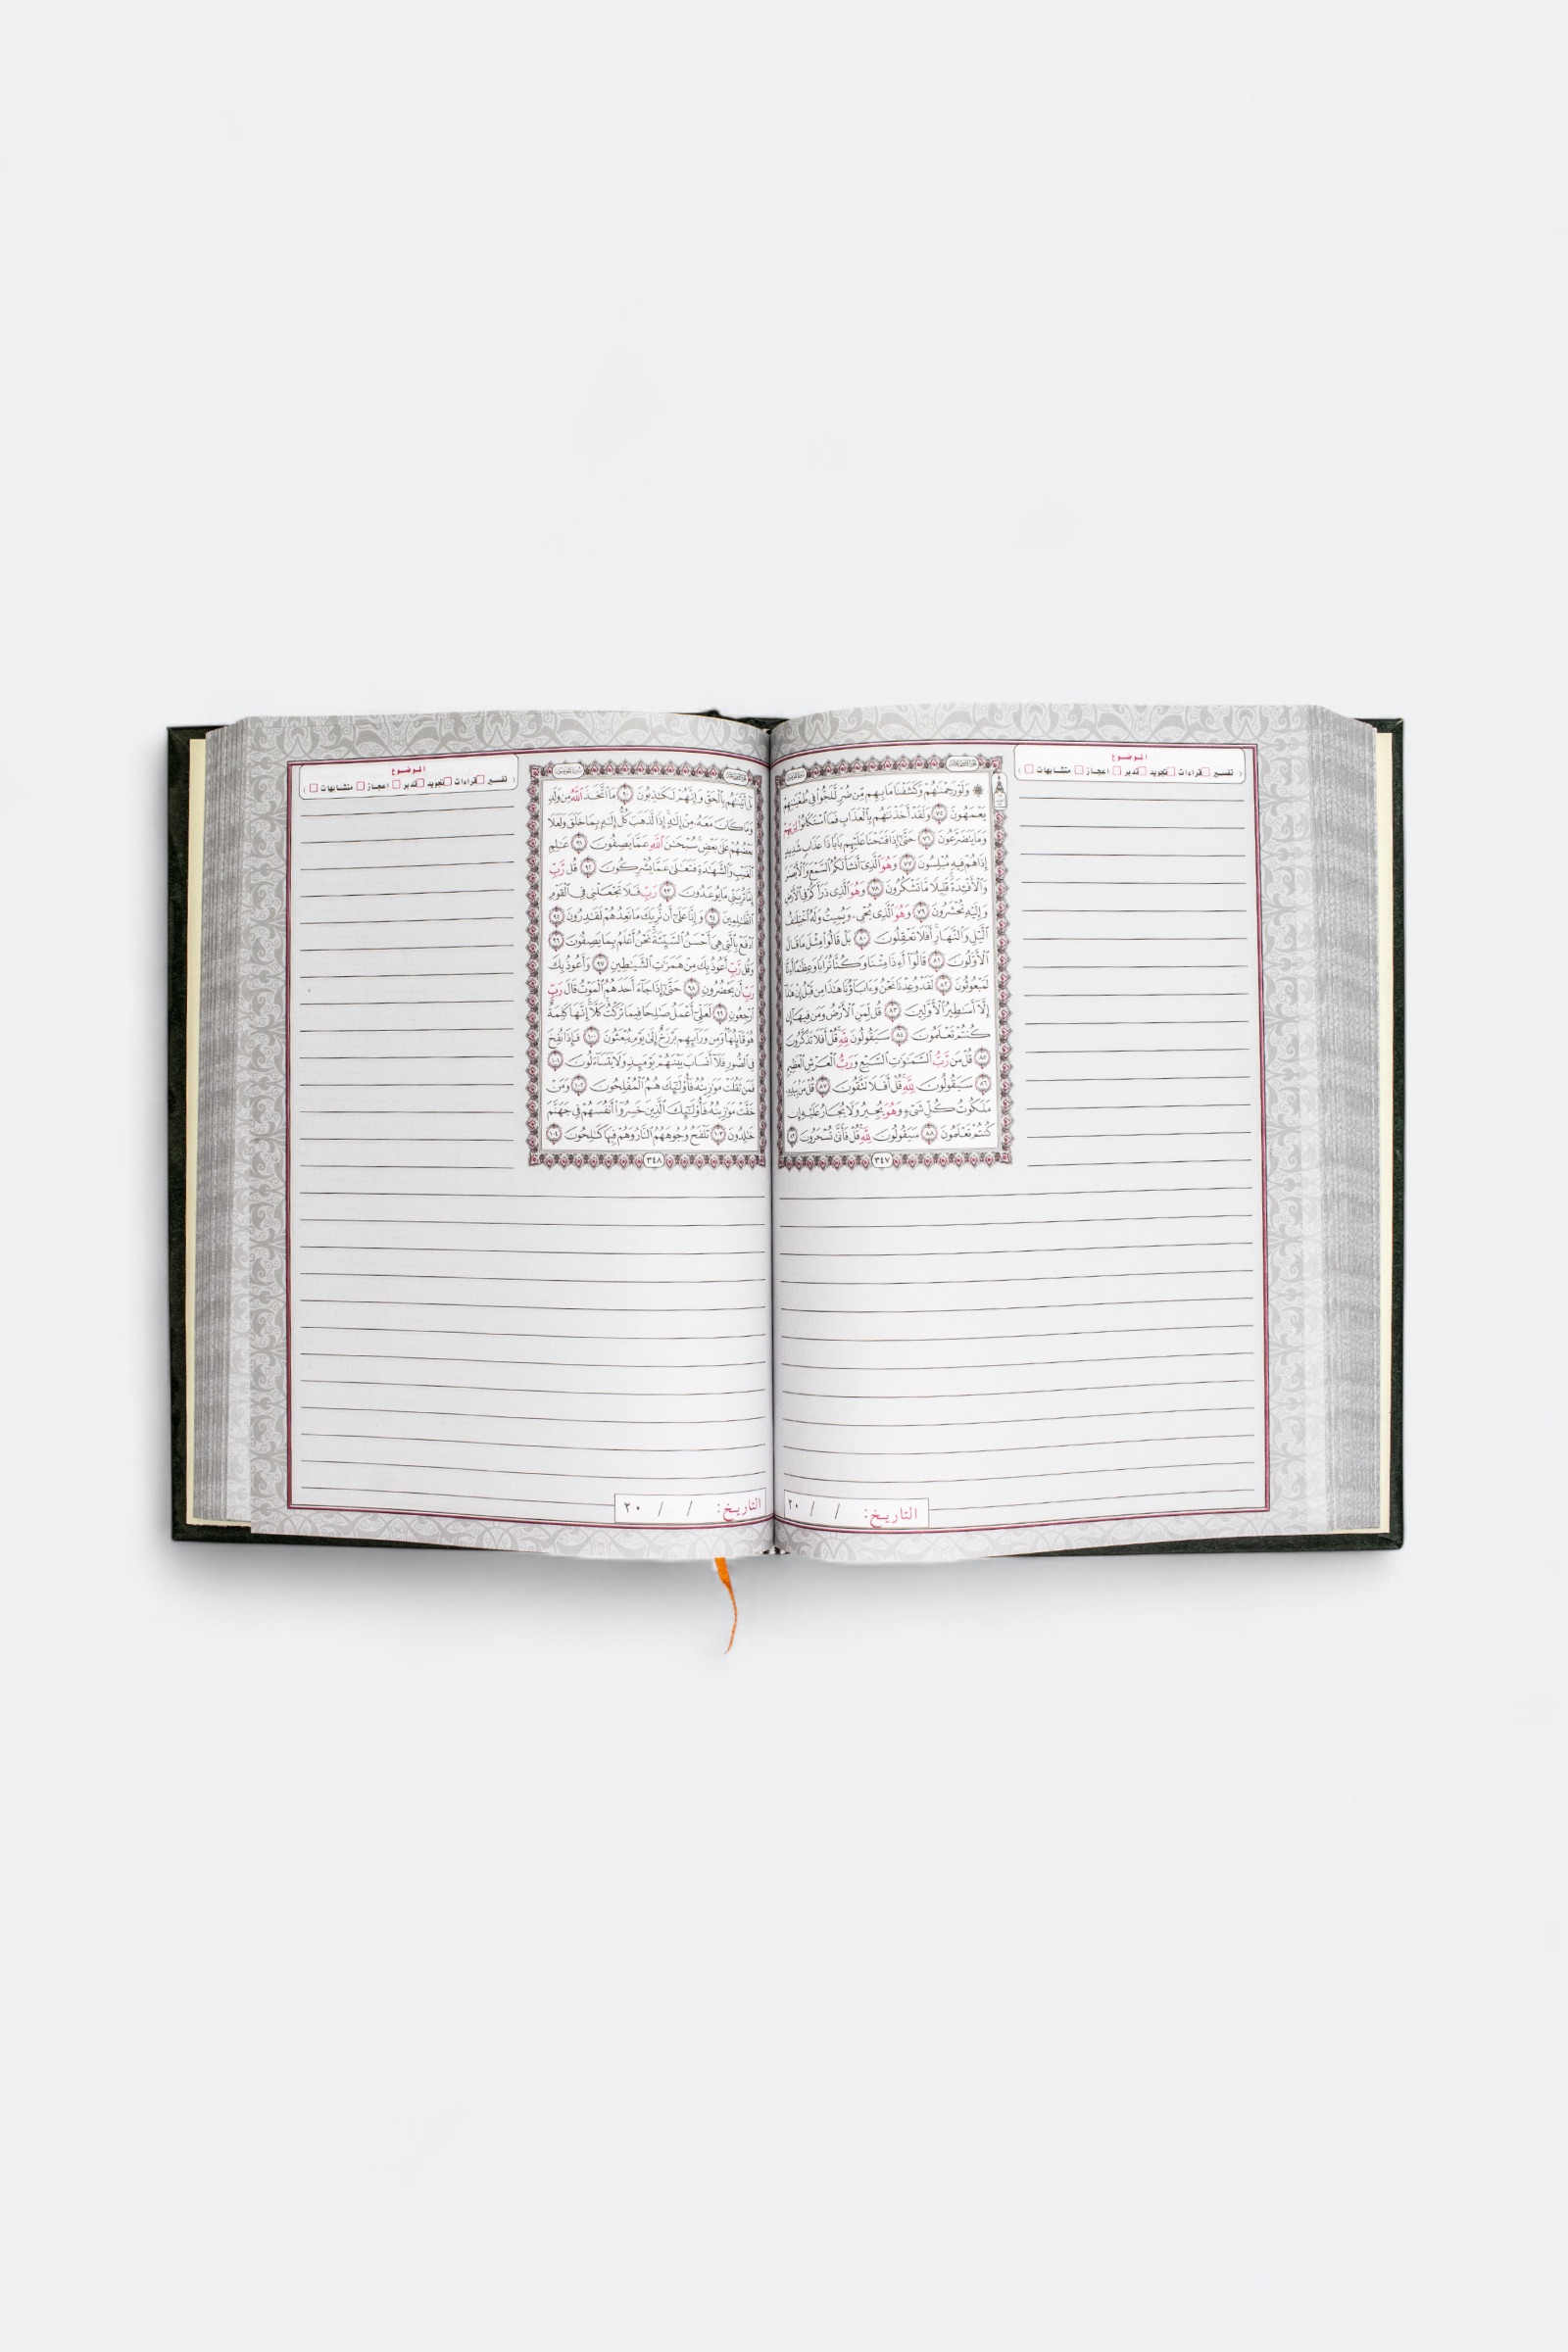 الموضوع
( تفسير □ قراءات □ تجويد □ تدبر □ اعجاز □ متشابهات □ )
۞ وَلَوْ رَحِمْنَٰهُمْ وَكَشَفْنَا مَا بِهِم مِّن ضُرٍّ لَّلَجُّوا۟ فِى طُغْيَٰنِهِمْ
يَعْمَهُونَ ٧٥ وَلَقَدْ أَخَذْنَٰهُم بِٱلْعَذَابِ فَمَا ٱسْتَكَانُوا۟ لِرَبِّهِمْ
وَمَا يَتَضَرَّعُونَ ٧٦ حَتَّىٰٓ إِذَا فَتَحْنَا عَلَيْهِم بَابًا ذَا عَذَابٍ شَدِيدٍ
إِذَا هُمْ فِيهِ مُبْلِسُونَ ٧٧ وَهُوَ ٱلَّذِىٓ أَنشَأَ لَكُمُ ٱلسَّمْعَ وَٱلْأَبْصَٰرَ
وَٱلْأَفْـِٔدَةَ ۚ قَلِيلًا مَّا تَشْكُرُونَ ٧٨ وَهُوَ ٱلَّذِى ذَرَأَكُمْ فِى ٱلْأَرْضِ
وَإِلَيْهِ تُحْشَرُونَ ٧٩ وَهُوَ ٱلَّذِى يُحْىِۦ وَيُمِيتُ وَلَهُ ٱخْتِلَٰفُ
ٱلَّيْلِ وَٱلنَّهَارِ ۚ أَفَلَا تَعْقِلُونَ ٨٠ بَلْ قَالُوا۟ مِثْلَ مَا قَالَ
ٱلْأَوَّلُونَ ٨١ قَالُوٓا۟ أَءِذَا مِتْنَا وَكُنَّا تُرَابًا وَعِظَٰمًا أَءِنَّا
لَمَبْعُوثُونَ ٨٢ لَقَدْ وُعِدْنَا نَحْنُ وَءَابَآؤُنَا هَٰذَا مِن قَبْلُ إِنْ هَٰذَآ
إِلَّآ أَسَٰطِيرُ ٱلْأَوَّلِينَ ٨٣ قُل لِّمَنِ ٱلْأَرْضُ وَمَن فِيهَآ إِن
كُنتُمْ تَعْلَمُونَ ٨٤ سَيَقُولُونَ لِلَّهِ ۚ قُلْ أَفَلَا تَذَكَّرُونَ
٨٥ قُلْ مَن رَّبُّ ٱلسَّمَٰوَٰتِ ٱلسَّبْعِ وَرَبُّ ٱلْعَرْشِ ٱلْعَظِيمِ
٨٦ سَيَقُولُونَ لِلَّهِ ۚ قُلْ أَفَلَا تَتَّقُونَ ٨٧ قُلْ مَنۢ بِيَدِهِۦ
مَلَكُوتُ كُلِّ شَىْءٍ وَهُوَ يُجِيرُ وَلَا يُجَارُ عَلَيْهِ إِن
كُنتُمْ تَعْلَمُونَ ٨٨ سَيَقُولُونَ لِلَّهِ ۚ قُلْ فَأَنَّىٰ تُسْحَرُونَ ٨٩
٣٤٧
التاريخ: / / ٢٠
الموضوع
( تفسير □ قراءات □ تجويد □ تدبر □ اعجاز □ متشابهات □ )
بَلْ أَتَيْنَٰهُم بِٱلْحَقِّ وَإِنَّهُمْ لَكَٰذِبُونَ ٩٠ مَا ٱتَّخَذَ ٱللَّهُ مِن وَلَدٍ
وَمَا كَانَ مَعَهُۥ مِنْ إِلَٰهٍ ۚ إِذًا لَّذَهَبَ كُلُّ إِلَٰهٍۭ بِمَا خَلَقَ وَلَعَلَا
بَعْضُهُمْ عَلَىٰ بَعْضٍ ۚ سُبْحَٰنَ ٱللَّهِ عَمَّا يَصِفُونَ ٩١ عَٰلِمِ
ٱلْغَيْبِ وَٱلشَّهَٰدَةِ فَتَعَٰلَىٰ عَمَّا يُشْرِكُونَ ٩٢ قُل رَّبِّ
إِمَّا تُرِيَنِّى مَا يُوعَدُونَ ٩٣ رَبِّ فَلَا تَجْعَلْنِى فِى ٱلْقَوْمِ
ٱلظَّٰلِمِينَ ٩٤ وَإِنَّا عَلَىٰٓ أَن نُّرِيَكَ مَا نَعِدُهُمْ لَقَٰدِرُونَ ٩٥
ٱدْفَعْ بِٱلَّتِى هِىَ أَحْسَنُ ٱلسَّيِّئَةَ ۚ نَحْنُ أَعْلَمُ بِمَا يَصِفُونَ ٩٦
وَقُل رَّبِّ أَعُوذُ بِكَ مِنْ هَمَزَٰتِ ٱلشَّيَٰطِينِ ٩٧ وَأَعُوذُ بِكَ
رَبِّ أَن يَحْضُرُونِ ٩٨ حَتَّىٰٓ إِذَا جَآءَ أَحَدَهُمُ ٱلْمَوْتُ قَالَ رَبِّ
ٱرْجِعُونِ ٩٩ لَعَلِّىٓ أَعْمَلُ صَٰلِحًا فِيمَا تَرَكْتُ ۚ كَلَّآ ۚ إِنَّهَا كَلِمَةٌ
هُوَ قَآئِلُهَا ۖ وَمِن وَرَآئِهِم بَرْزَخٌ إِلَىٰ يَوْمِ يُبْعَثُونَ ١٠٠ فَإِذَا نُفِخَ
فِى ٱلصُّورِ فَلَآ أَنسَابَ بَيْنَهُمْ يَوْمَئِذٍ وَلَا يَتَسَآءَلُونَ ١٠١
فَمَن ثَقُلَتْ مَوَٰزِينُهُۥ فَأُو۟لَٰٓئِكَ هُمُ ٱلْمُفْلِحُونَ ١٠٢ وَمَنْ
خَفَّتْ مَوَٰزِينُهُۥ فَأُو۟لَٰٓئِكَ ٱلَّذِينَ خَسِرُوٓا۟ أَنفُسَهُمْ فِى جَهَنَّمَ
خَٰلِدُونَ ١٠٣ تَلْفَحُ وُجُوهَهُمُ ٱلنَّارُ وَهُمْ فِيهَا كَٰلِحُونَ ١٠٤
٣٤٨
التاريخ: / / ٢٠